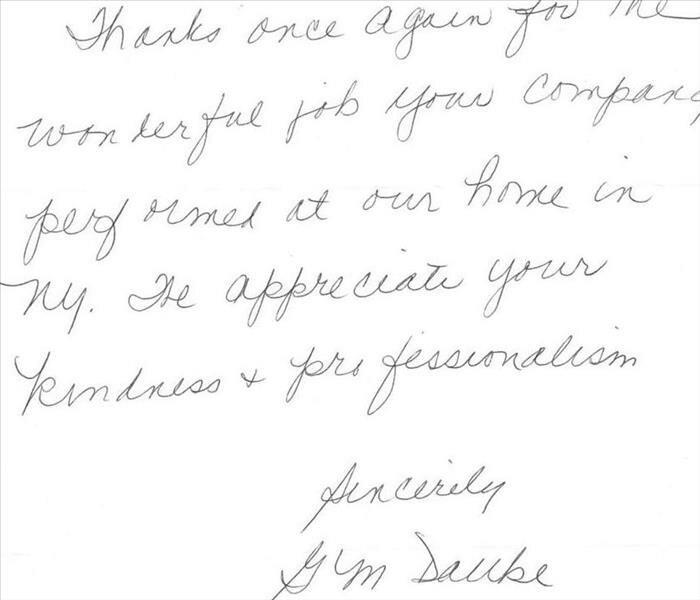 Thanks once again for the
wonderful job your company
performed at our home in
NY. We appreciate your
kindness & professionalism
Sincerely